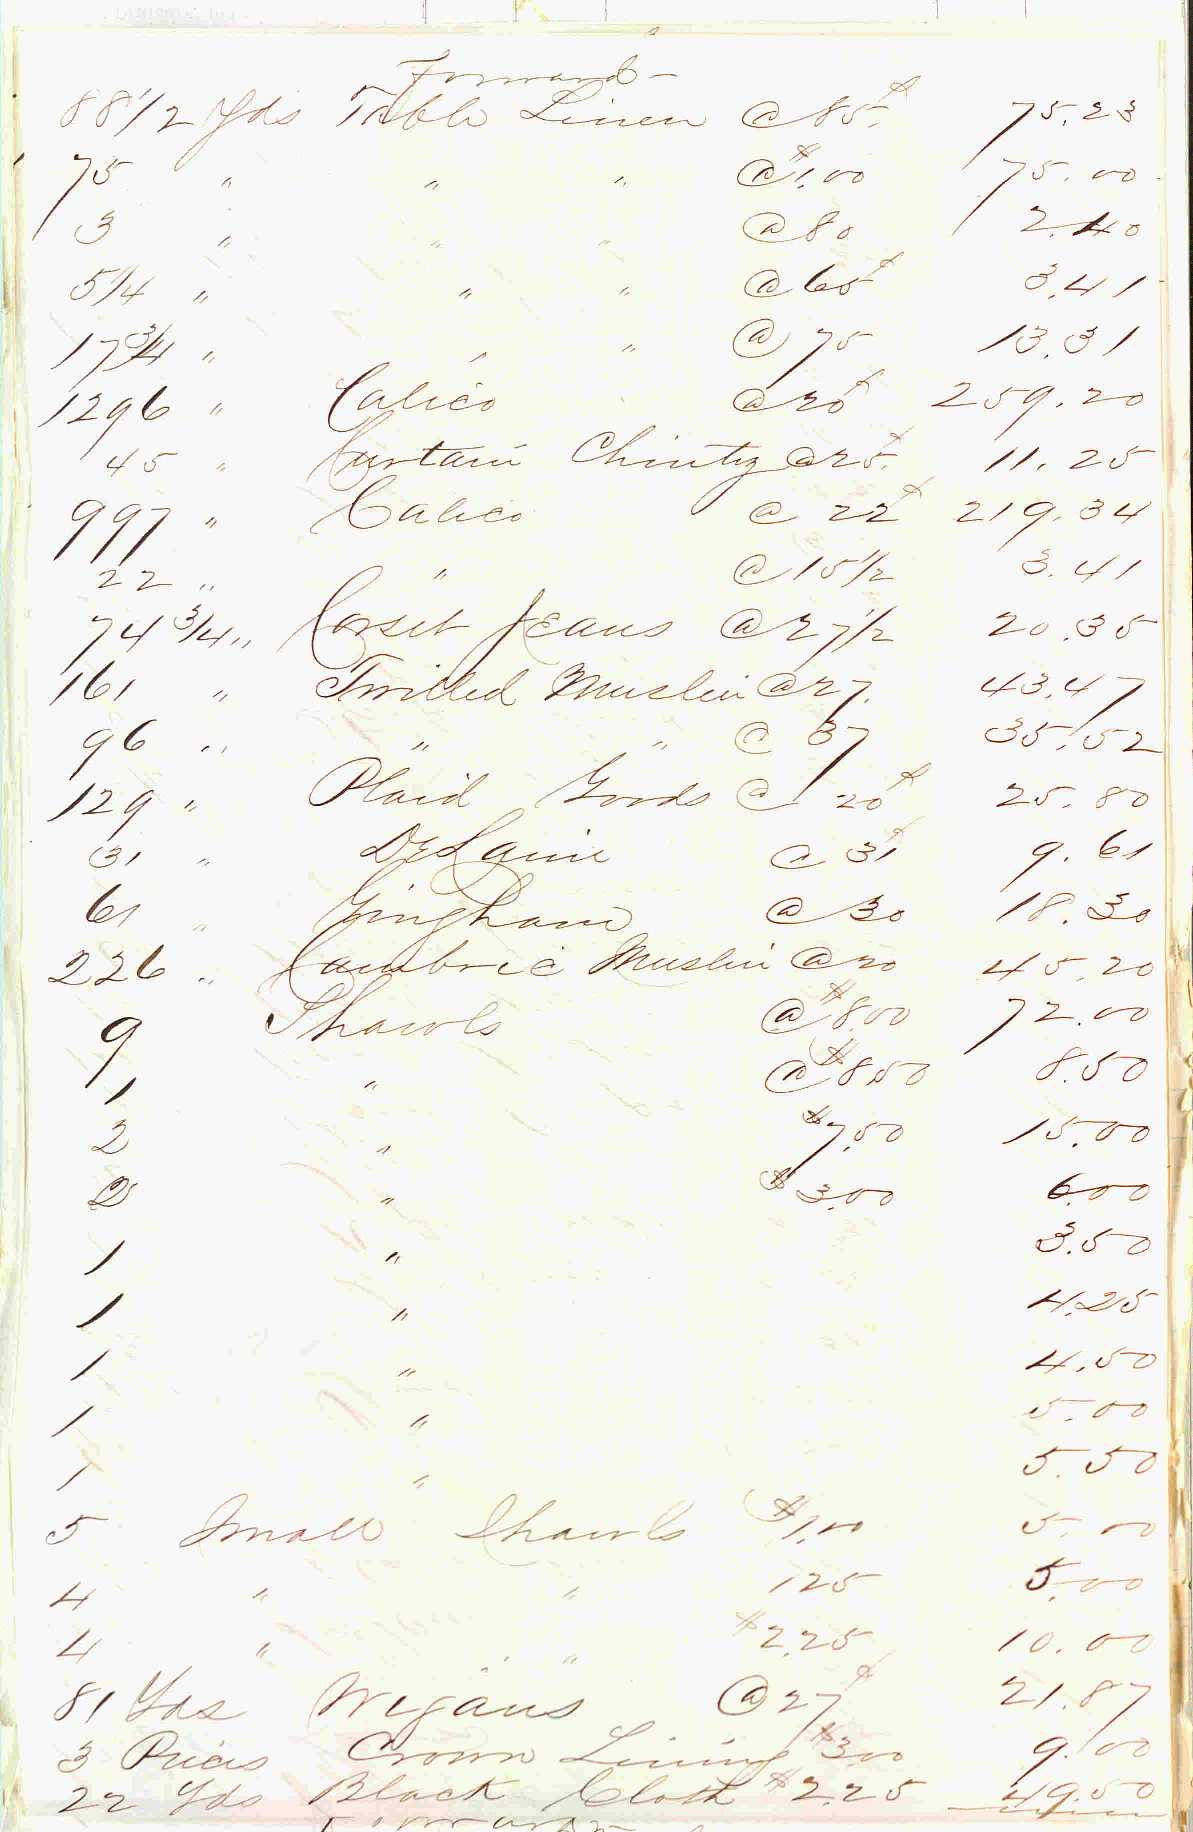 Forward -
88 1/2 Yds Table Linen @ 85¢ 75.23
75 " " " @ $1.00 75.00
3 " " " @ 80 2.40
5 1/4 " " " @ 65¢ 3.41
17 3/4 " " " @ 75 13.31
1296 " Calico @ 20¢ 259.20
45 " Curtain Chintz @ 25¢ 11.25
997 " Calico @ 22¢ 219.34
22 " " @ 15 1/2 3.41
74 3/4 " Corset Jeans @ 27 1/2 20.35
161 " Twilled Muslin @ 27. 43.47
96 " " " @ 37 35.52
129 " Plaid Goods @ 20¢ 25.80
31 " DeLaine @ 31¢ 9.61
61 " Gingham @ 30 18.30
226 " Cambric Muslin @ 20 45.20
9 Shawls @ $8.00 72.00
1 " @ $8.50 8.50
2 " $7.50 15.00
2 " $3.00 6.00
1 " 3.50
1 " 4.25
1 " 4.50
1 " 5.00
1 " 5.50
5 Small Shawls $1.00 5.00
4 " " 125 5.00
4 " " $2.25 10.00
81 Yds Wigans @ 27¢ 21.87
3 Pieces Crown Lining $3.00 9.00
22 Yds Black Cloth $2.25 49.50
Forward